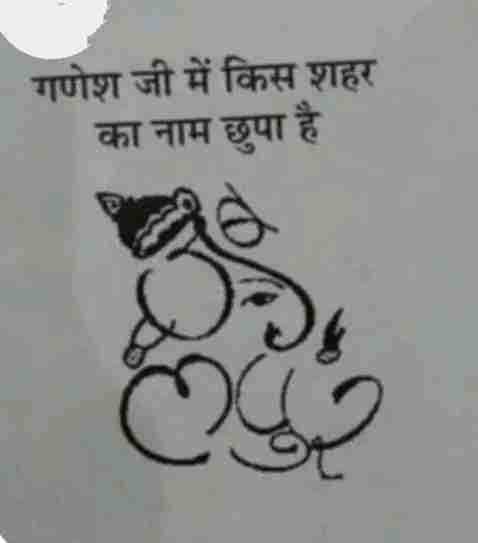 गणेश जी में किस शहर
का नाम छुपा है